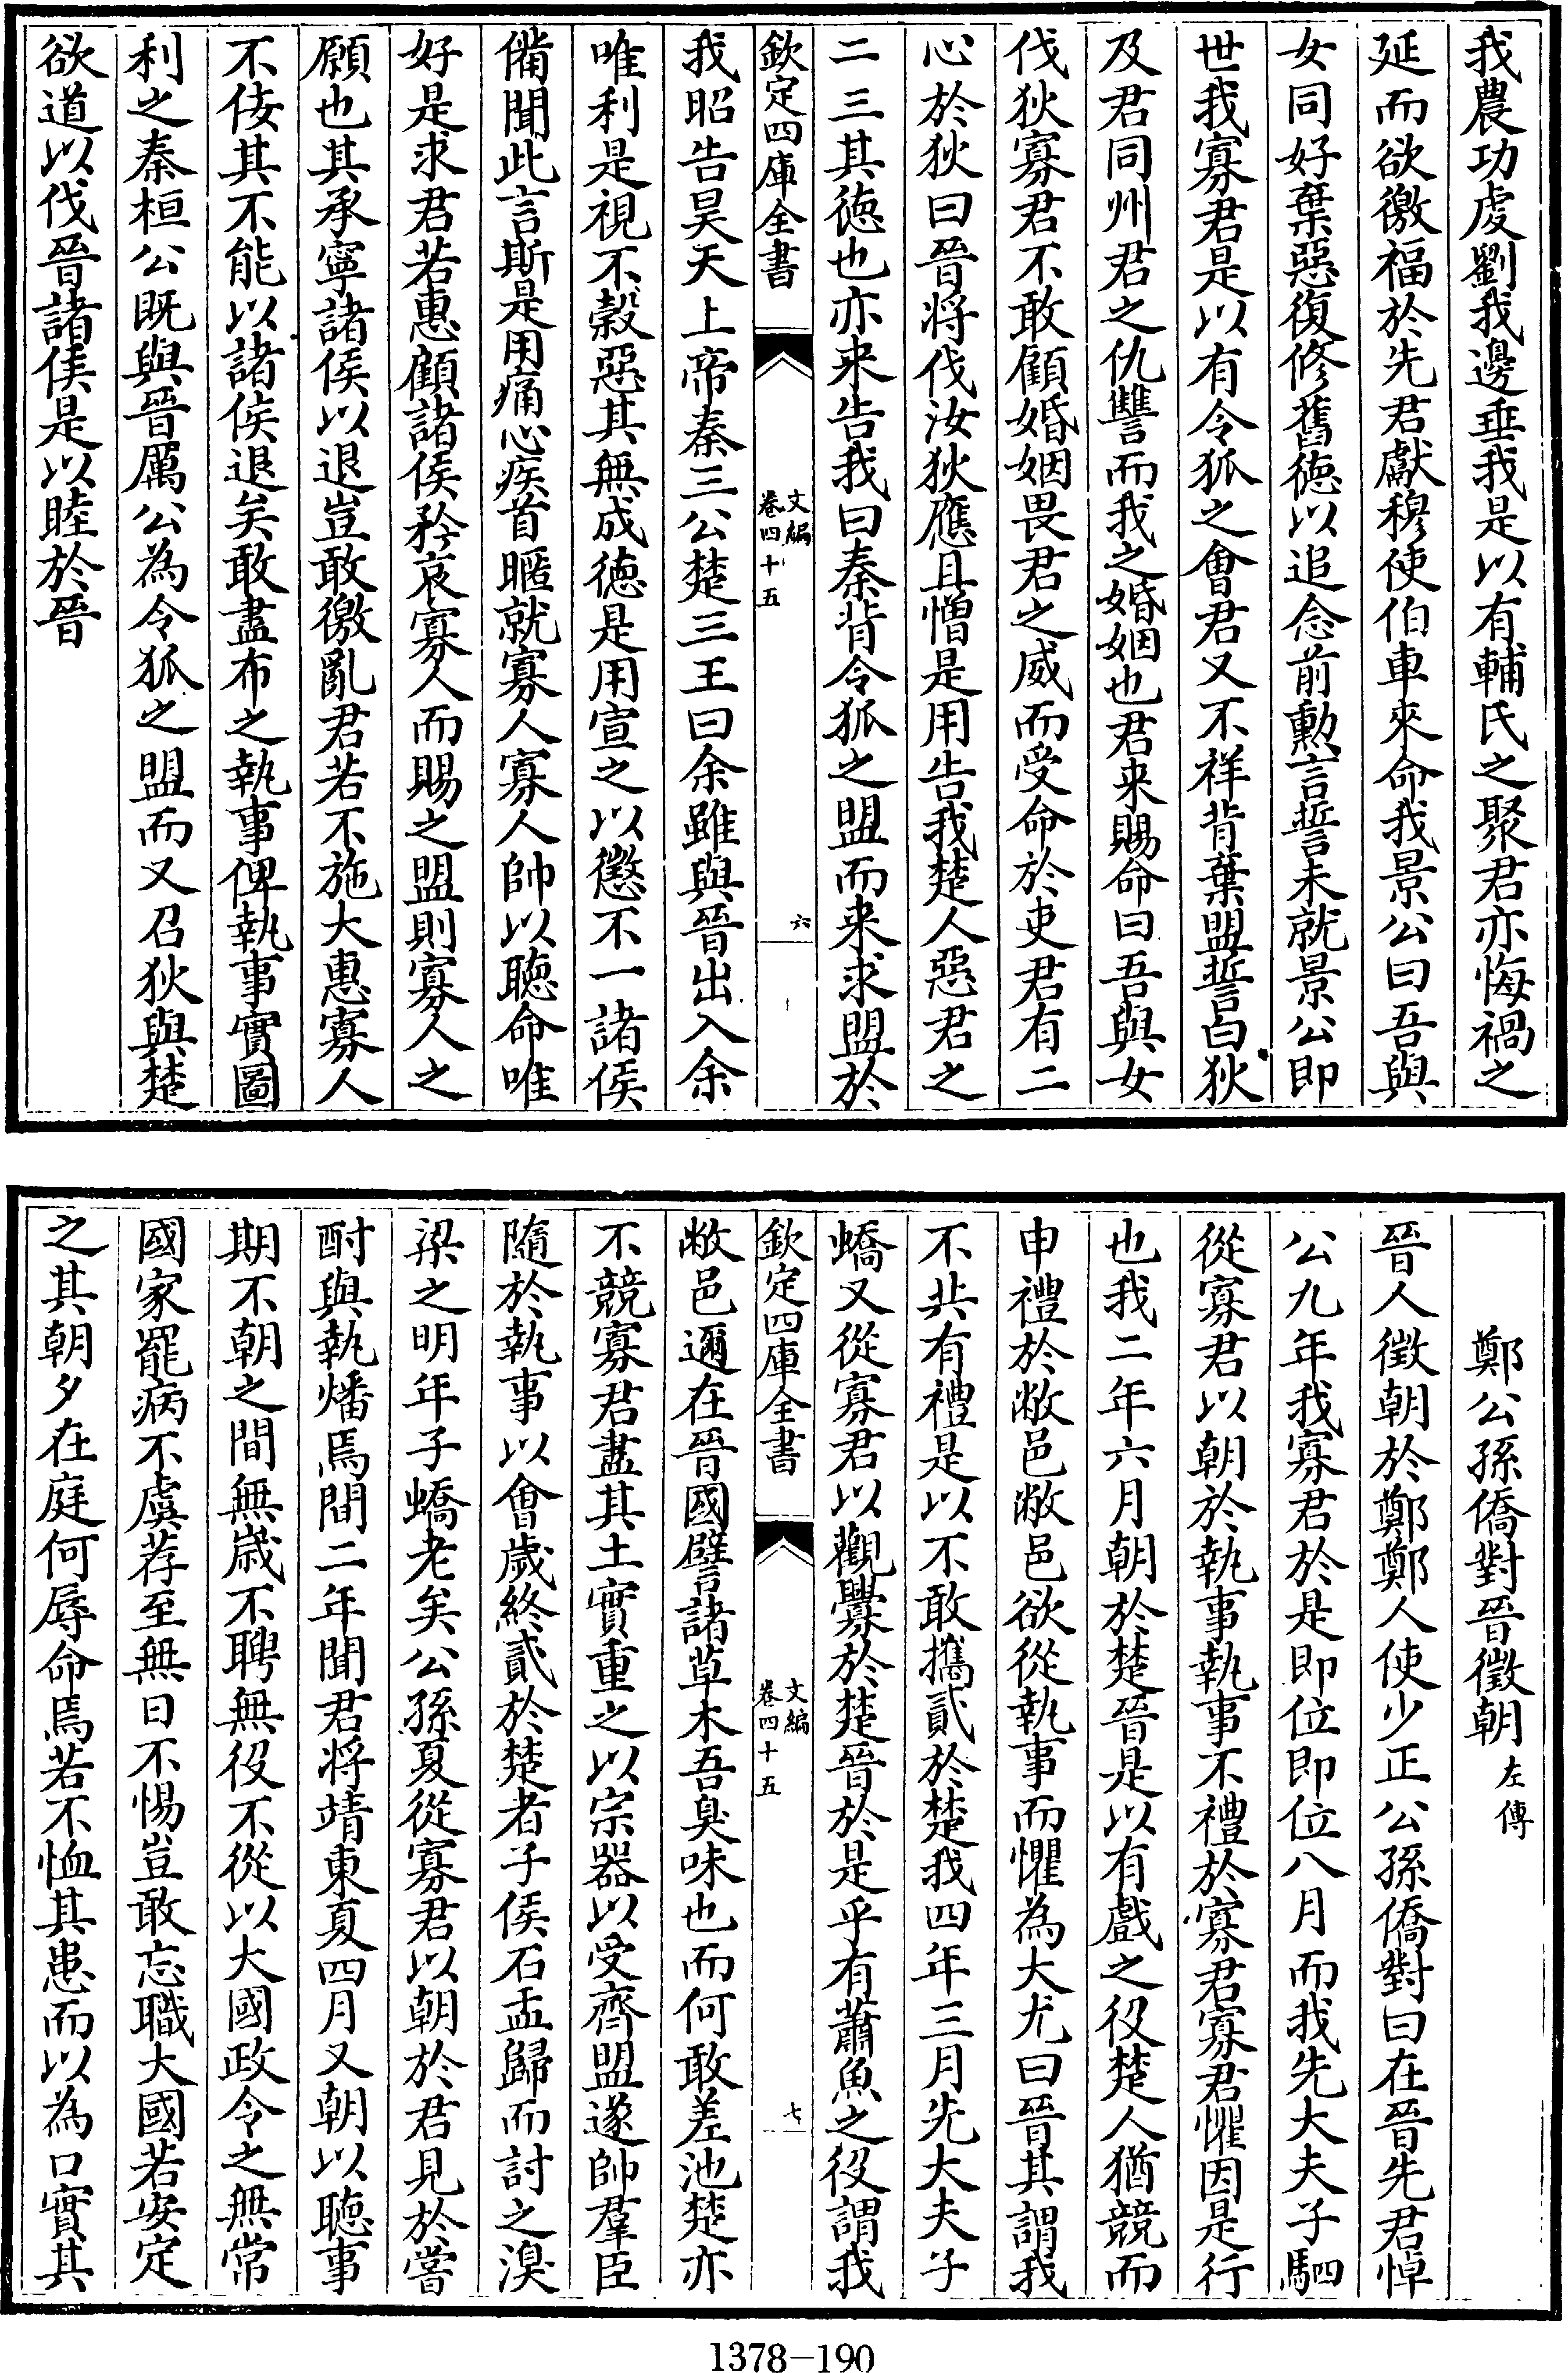 我農功虔劉我邊垂我是以有輔氏之聚君亦悔禍之
延而欲徼福於先君獻穆使伯車來命我景公曰吾與
女同好棄惡復修舊徳以追念前勲言誓未就景公即
世我寡君是以有令狐之㑹君又不祥背棄盟誓白狄
及君同州君之仇讐而我之婚姻也君来賜命曰吾與女
伐狄寡君不敢顧婚姻畏君之威而受命於吏君有二
心於狄曰晉將伐汝狄應且憎是用告我楚人惡君之
二三其徳也亦来告我曰秦背令狐之盟而来求盟於
欽定四庫全書
文編
卷四十五
六
我昭告昊天上帝秦三公楚三王曰余雖與晉出入余
唯利是視不榖惡其無成徳是用宣之以懲不一諸侯
備聞此言斯是用痛心疾首暱就寡人寡人帥以聴命唯
好是求君若惠顧諸侯矜哀寡人而賜之盟則寡人之
願也其承寧諸侯以退豈敢徼亂君若不施大惠寡人
不佞其不能以諸侯退矣敢盡布之執事俾執事實圖
利之秦桓公既與晉厲公為令狐之盟而又召狄與楚
欲道以伐晉諸侯是以睦於晉
鄭公孫僑對晉徵朝左傳
晉人徵朝於鄭鄭人使少正公孫僑對曰在晉先君悼
公九年我寡君於是即位即位八月而我先大夫子駟
從寡君以朝於執事執事不禮於寡君寡君懼因是行
也我二年六月朝於楚晉是以有戲之役楚人猶競而
申禮於敝邑敝邑欲從執事而懼為大尤曰晉其謂我
不共有禮是以不敢攜貳於楚我四年三月先大夫子
蟜又從寡君以觀釁於楚晉於是乎有蕭魚之役謂我
欽定四庫全書
文編
卷四十五
七
敝邑邇在晉國譬諸草木吾臭味也而何敢差池楚亦
不競寡君盡其土實重之以宗器以受齊盟遂帥羣臣
隨於執事以㑹歲終貳於楚者子侯石盂歸而討之湨
梁之明年子蟜老矣公孫夏從寡君以朝於君見於嘗
酎與執燔焉間二年聞君将靖東夏四月又朝以聴事
期不朝之間無嵗不聘無役不從以大國政令之無常
國家罷病不虞荐至無日不惕豈敢忘職大國若安定
之其朝夕在庭何辱命焉若不恤其患而以為口實其
1378-190